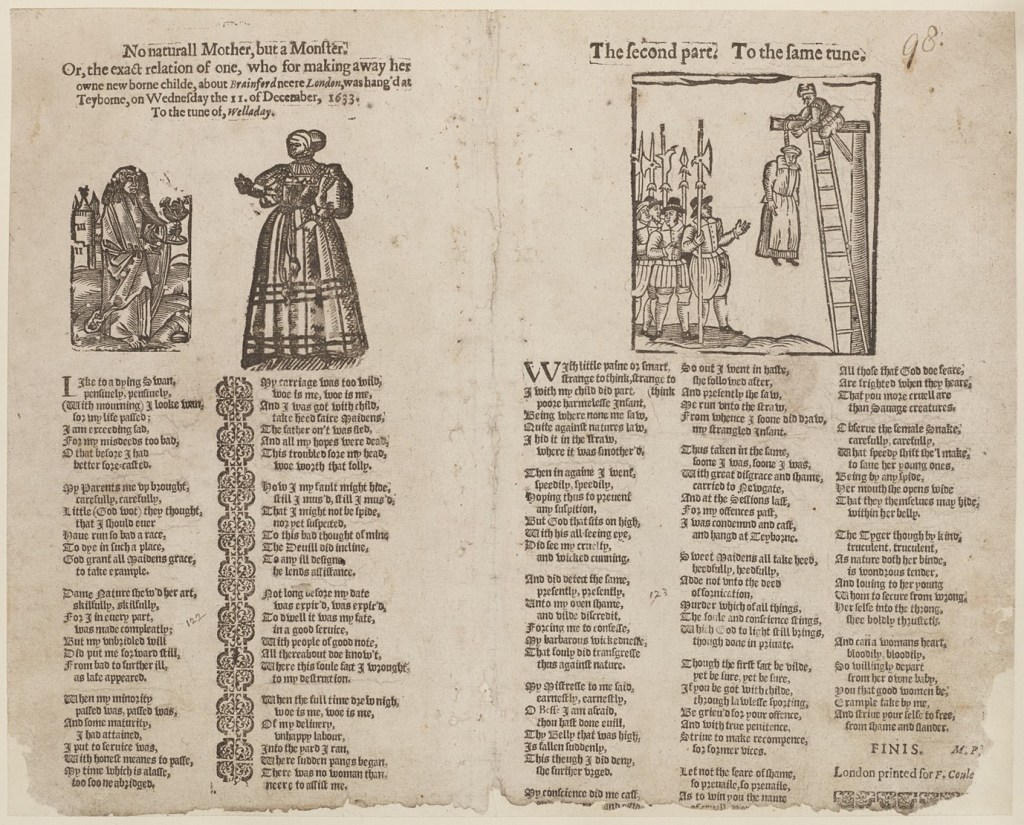 No naturall Mother, but a Monster.
Or, the exact relation of one, who for making away her
owne new borne childe, about Brainford neere London, was hang'd at
Teyborne, on Wednesday the 11. of December, 1633.
To the tune of, Welladay.
Like to a dying Swan,
pensively, pensively,
(With mourning) I looke wan,
for my life passed;
I am exceeding sad,
For my misdeeds too bad,
O that before I had
better fore-casted.
My Parents me up brought,
carefully, carefully,
Little (God wot) they thought,
that I should euer
Haue run so bad a race,
To dye in such a place,
God grant all Maidens grace,
to take example.
Dame Nature shew'd her art,
skilfully, skilfully,
For I in euery part,
was made compleatly;
But my unbridled will
Did put me forward still,
From bad to further ill,
as late appeared.
When my minority
passed was, passed was,
And some maturity,
I had attained,
I put to seruice was,
With honest meanes to passe,
My time which is alasse,
too soone abridged.
122
My carriage was too wild,
woe is me, woe is me,
And I was got with child,
take heed faire Maidens,
The father on't was fled,
And all my hopes were dead,
This troubled sore my head,
woe worth that folly.
How I my fault might hide,
still I mus'd, still I mus'd,
That I might not be spide,
nor yet suspected,
To this bad thought of mine
The Deuill did incline,
To any ill designe
he lends assistance.
Not long before my date
was expir'd, was expir'd,
To dwell it was my fate,
in a good seruice,
With people of good note,
All thereabout doe know't,
Where this foule fact I wrought
to my destruction.
When the full time drew nigh,
woe is me, woe is me,
Of my deliuery,
unhappy labour,
Into the yard I ran,
Where sudden pangs began,
There was no woman than,
neere to assist me.
The second part. To the same tune.
98.
With little paine or smart,
strange to think, strange to
(think
I with my child did part,
poore harmelesse Infant,
Being where none me saw,
Quite against natures law,
I hid it in the straw,
where it was smother'd.
Then in againe I went,
speedily, speedily,
Hoping thus to preuent
any suspition,
But God that sits on high,
With his all-seeing eye,
Did see my cruelty,
and wicked cunning.
And did detect the same,
presently, presently,
Unto my owne shame,
and vilde discredit,
Forcing me to confesse,
My barbarous wickednesse,
That fouly did transgresse
thus against nature.
My Mistresse to me said,
earnestly, earnestly,
O Besse I am afraid,
thou hast done euill,
Thy Belly that was high,
Is fallen suddenly,
This though I did deny,
she further vrged.
My conscience did me cast,
123
So out I went in haste,
she followed after,
And presently she saw,
Me run vnto the straw,
From whence I soone did draw,
my strangled Infant.
Thus taken in the same,
soone I was, soone I was,
With great disgrace and shame,
carried to Newgate,
And at the Sessions last,
For my offences past,
I was condemnd and cast,
and hang'd at Teyborne.
Sweet Maidens all take heed,
heedfully, heedfully,
Adde not vnto the deed
of fornication,
Murder which of all things,
The soule and conscience stings,
Which God to light still brings,
though done in priuate.
Though the first fact be vilde,
yet be sure, yet be sure,
If you be got with childe,
through lawlesse sporting,
Be grieu'd for your offence,
And with true penitence,
Striue to make recompence,
for former vices.
Let not the feare of shame,
so preuaile, so preuaile,
As to win you the name
All those that God doe feare,
Are frighted when they heare,
That you more cruell are
than Sauage creatures.
Obserue the female Snake,
carefully, carefully,
What speedy shift she'l make,
to saue her young ones,
Being by any spide,
Her mouth she opens wide
That they themselues may hide,
within her belly.
The Tyger though by kind,
truculent, truculent,
As nature doth her binde,
is wondrous tender,
And louing to her young
Whom to secure from wrong,
Her selfe into the throng,
shee boldly thrusteth.
And can a womans heart,
bloodily, bloodily,
So willingly depart
from her owne baby,
You that good women be,
Example take by me,
And striue your selfe to free,
from shame and slander.
FINIS. M. P.
London printed for F. Coule